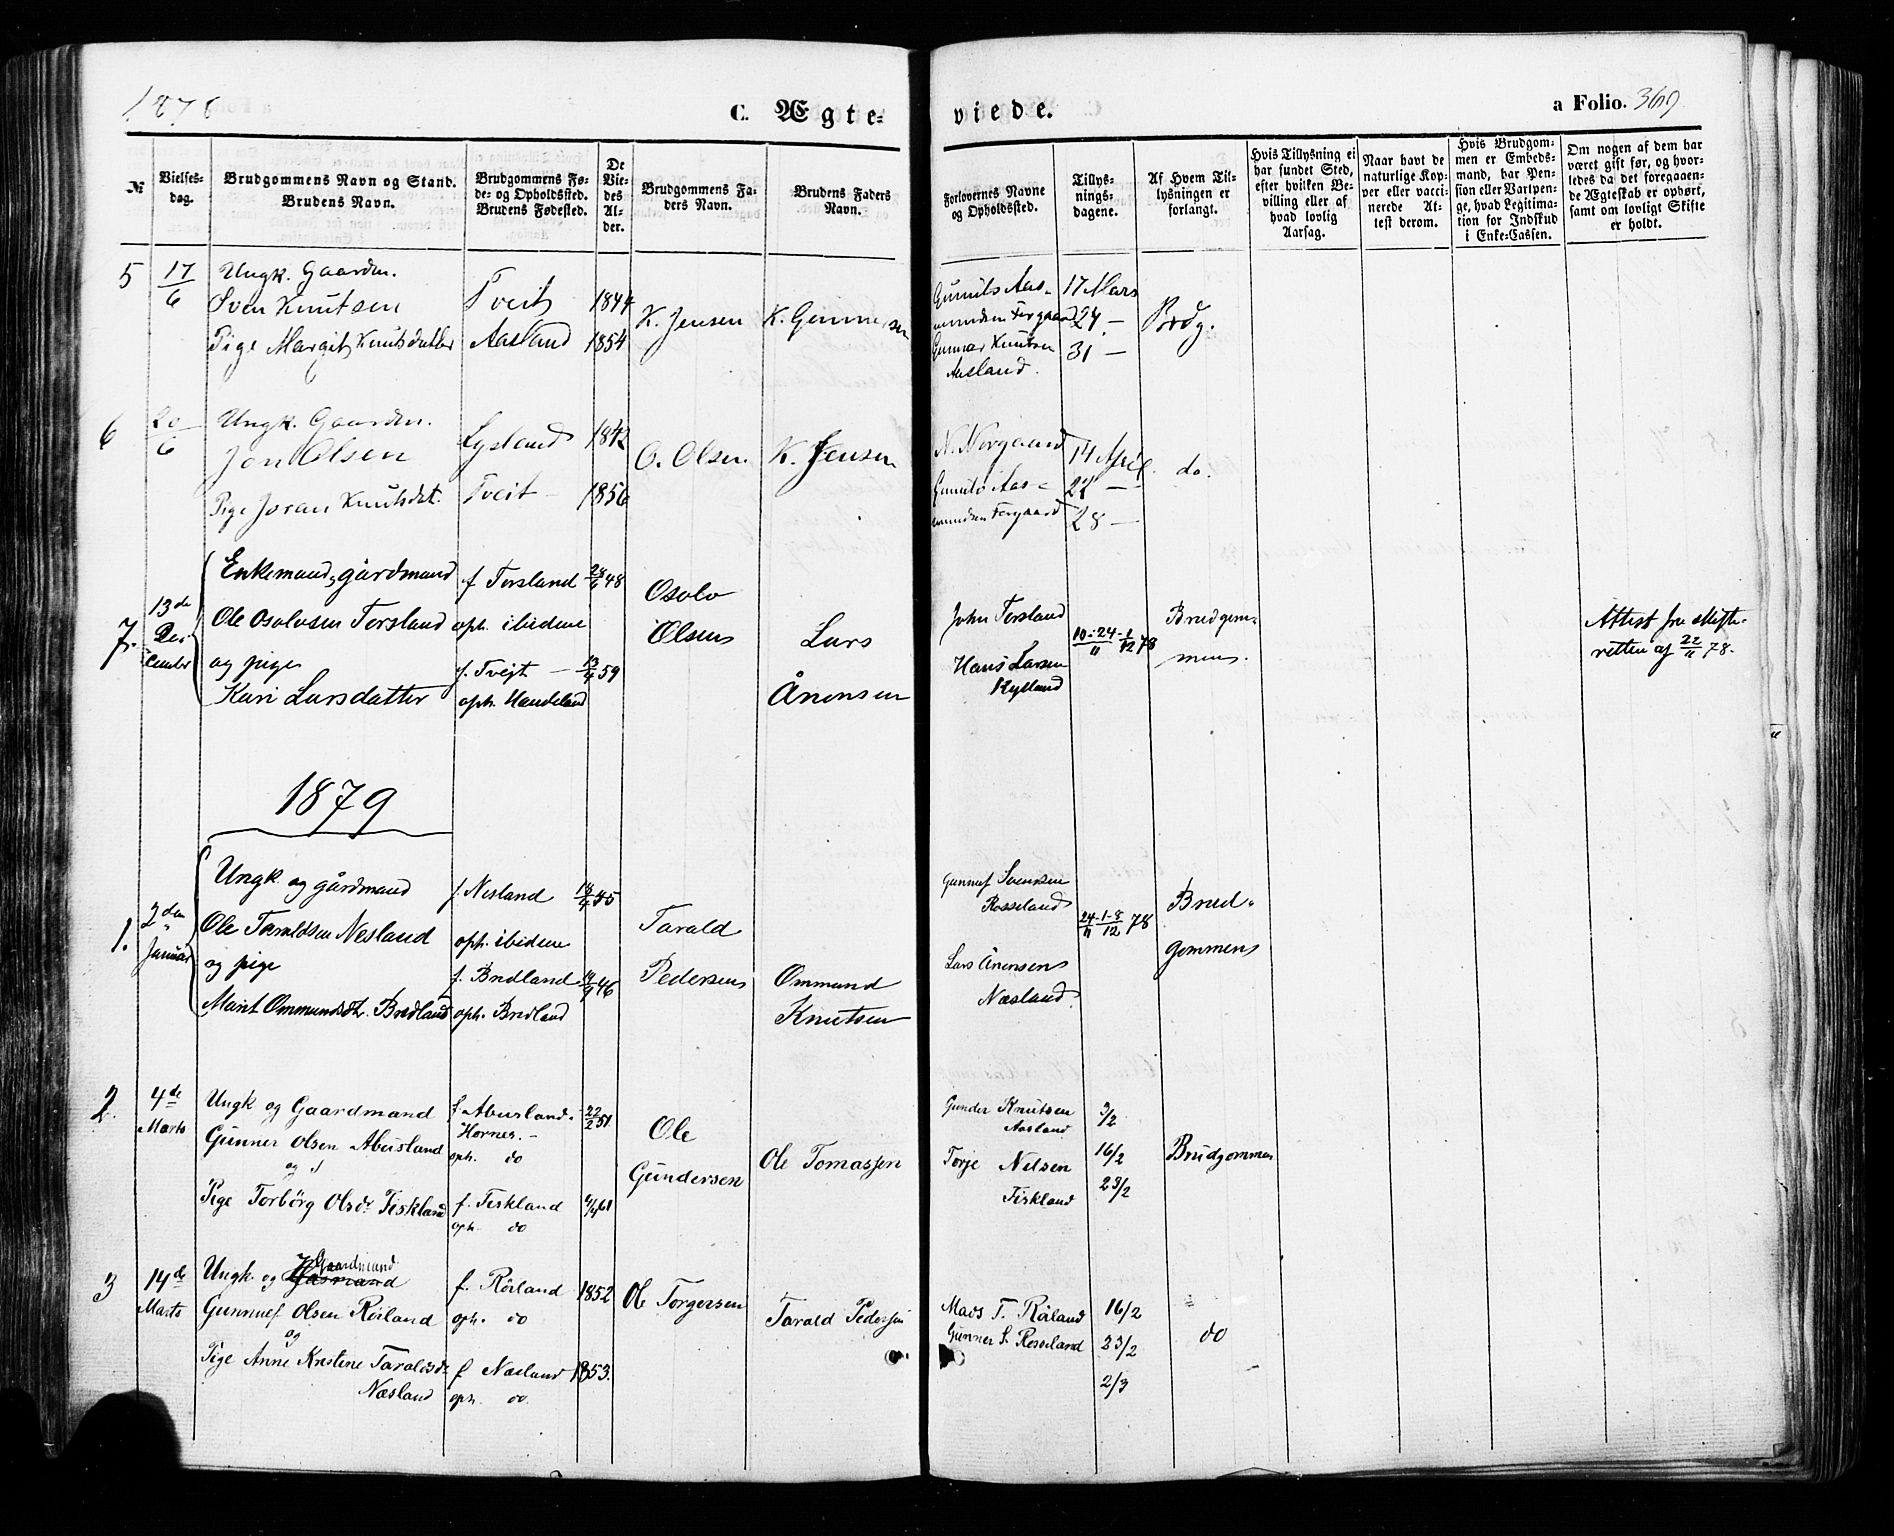 1878
C. Ægte-
viede.
a Folio. 369
№
Vielses-
dag.
Brudgommens Navn og Stand.
Brudens Navn.
Brudgommens Fø-
de- og Opholdssted.
Brudens Fødested.
De
Vie-
des
Al-
der.
Brudgommens Fa-
ders Navn.
Brudens Faders
Navn.
Forlovernes Navne
og Opholdssted.
Tillys-
nings-
dagene.
Af Hvem Til-
lysningen er
forlangt.
Hvis Tillysning ei
har fundet Sted,
efter hvilken Be-
villing eller af
hvad lovlig
Aarsag.
Naar havt de
naturlige Kop-
per eller vacci-
nerede At-
test derom.
Hvis Brudgom-
men er Embeds-
mand, har Pen-
sion eller Vartpen-
ge, hvad Legitima-
tion for Indskud
i Enke-Cassen.
Om nogen af dem har
været gift før, og hvor-
ledes da det foregaaen-
de Ægteskab er ophørt,
samt om lovligt Skifte
er holdt.
5
17/6
Ungk. Gaardm.
Sven Knutsen
Pige Margit Knutsdatter
Tveit
Aasland
1844
1854
K. Jensen
K. Gunnersen
Gunuls Aas-
mundsen Fergaard
Gunnar Knutsen
Aasland.
17 Mars
24 —
31 —
Brdg.
6
20/6
Ungk. Gaardm.
Jon Olsen
Pige Joran Knutsdat.
Lysland
Tveit
1842
1856
O. Olsen
K. Jensen
N. Norgaard
Gunulv Aas-
mundsen Fergaard
14 April
22 —
28 —
do.
7.
13de
De-
cember
Enkemand, gårdmand
Ole Osolvsen Torsland
og pige
Kari Larsdatter
f Torsland
oph. ibidem
f. Tvejt —
oph. Haudeland
28/6 48
13/4 59
Osolv
Olsen
Lars
Ånensen
John Torsland
Hans Larsen
Kylland
10-24/11 - 1/12 78
Brudgom-
mens.
Attest fra skifte-
retten af 22/11 78.
1879
1.
2den
Januar
Ungk. og gårdmand
Ole Taraldsen Nesland
og pige
Marit Ommundsdtr. Bredland
f. Nesland
oph. ibidem
f. Bredland
oph. Bredland
55
46
Tarald
Pedersen
Ommund
Knutsen
Gunnuf Svensen
Rosseland
Lars Ånensen
Næsland
24/11 - 1-8/12 78
Brud-
gommens
2.
4de
Marts
Ungk og Gaardmand
Gunner Olsen Abusland
og
Pige Torbørg Olsdr Fiskland
f. Abusland.
Hornes. —
oph. do
f. Fiskland
oph. do
22/2 51
61
Ole
Gundersen
Ole Tomassen
Gunder Knutsen
Aasland
Torje Nelsen
Fiskland
9/2
16/2
23/2
Brudgommen
3
14de
Marts
Ungk. og Gaardmand
Gunnuf Olsen Røiland
og
Pige Anne Kristine Taraldsdr
Næsland
f. Röiland
oph. do
f Næsland
oph. do.
1852
1853.
Ole Torgersen
Tarald Pedersen
Mads T. Røiland
Gunner S. Rosseland
16/2
23/2
2/3
do